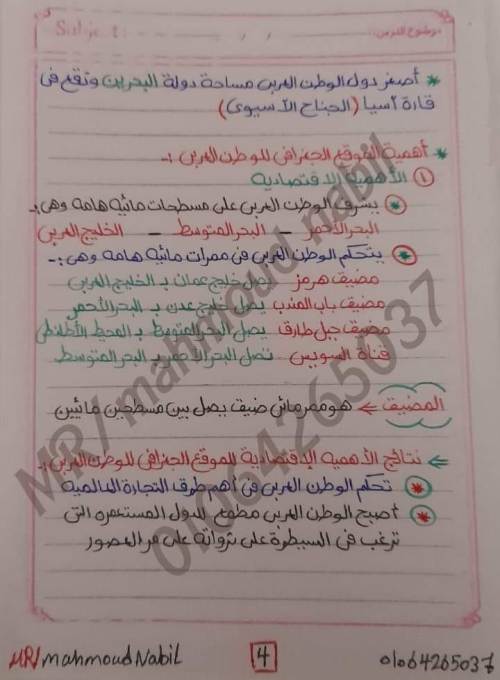 موضوع الدرس:
Subject:
* أصغر دول الوطن العربى مساحة دولة البحرين وتقع فى
قارة أسيا (الجناح الأسيوى)
* أهمية الموقع الجغرافى للوطن العربى :-
① الأهمية الاقتصادية
* يشرف الوطن العربى على مسطحات مائية هامة وهى :-
البحر الأحمر - البحر المتوسط - الخليج العربى
* يتحكم الوطن العربى فى ممرات مائية هامه وهى :-
مضيق هرمز يصل خليج عمان بـ الخليج العربى
مضيق باب المندب يصل خليج عدن بـ البحر الأحمر
مضيق جبل طارق يصل البحر المتوسط بـ المحيط الأطلنطى
قناة السويس تصل البحر الأحمر بـ البحر المتوسط
المضيق ⇐ هو ممر مائى ضيق يصل بين مسطحين مائيين
⇐ نتائج الأهميه الإقتصادية للموقع الجغرافى للوطن العربى :-
* تحكم الوطن العربى فى أهم طرق التجارة العالمية
* أصبح الوطن العربى مطمع للدول المستعمره التى
ترغب فى السيطرة على ثرواته على مر العصور
MR/ mahmoud nabil
01064265037
MR/mahmoud Nabil
4
01064265037